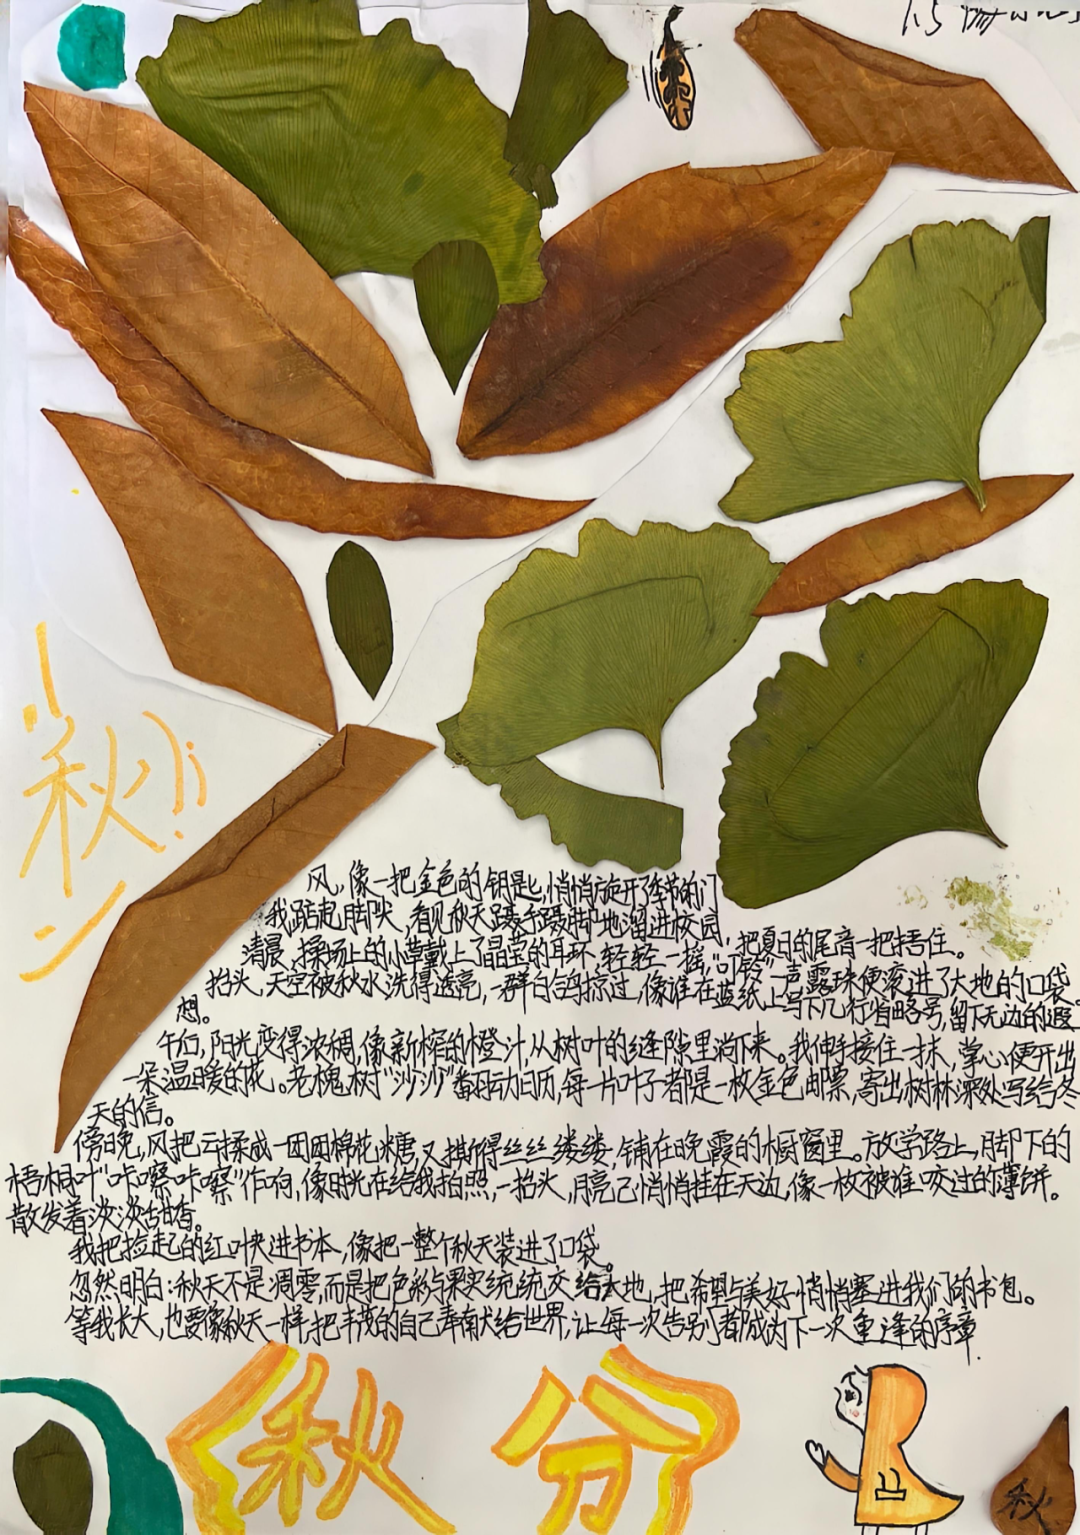 秋
风,像一把金色的钥匙,悄悄旋开了季节的门
我踮起脚尖,看见秋天蹑手蹑脚地溜进校园,把夏日的尾音一把捂住。
清晨,操场上的小草戴上了晶莹的耳环,轻轻一摇,“叮铃”一声露珠便滚进了大地的口袋
抬头,天空被秋水洗得透亮,一群白鸽掠过,像谁在蓝纸上写下几行省略号,留下无边的遐
想。
午后,阳光变得浓稠,像新榨的橙汁,从树叶的缝隙里淌下来。我伸手接住一抹,掌心便开出
一朵温暖的花。老槐树“沙沙”翻动日历,每一片叶子都是一枚金色邮票,寄出树林深处写给冬
天的信。
傍晚,风把云揉成一团团棉花糖,又撕得丝丝缕缕,铺在晚霞的橱窗里。放学路上,脚下的
梧桐叶“咔嚓咔嚓”作响,像时光在给我拍照,一抬头,月亮已悄悄挂在天边,像一枚被谁咬过的薄饼。
散发着淡淡甜香。
我把捡起的红叶夹进书本,像把一整个秋天装进了口袋。
忽然明白:秋天不是凋零,而是把色彩与果实统统交给大地,把希望与美好悄悄塞进我们的书包。
等我长大,也要像秋天一样,把丰茂的自己奉献给世界,让每一次告别都成为下一次重逢的序章.
秋分
秋